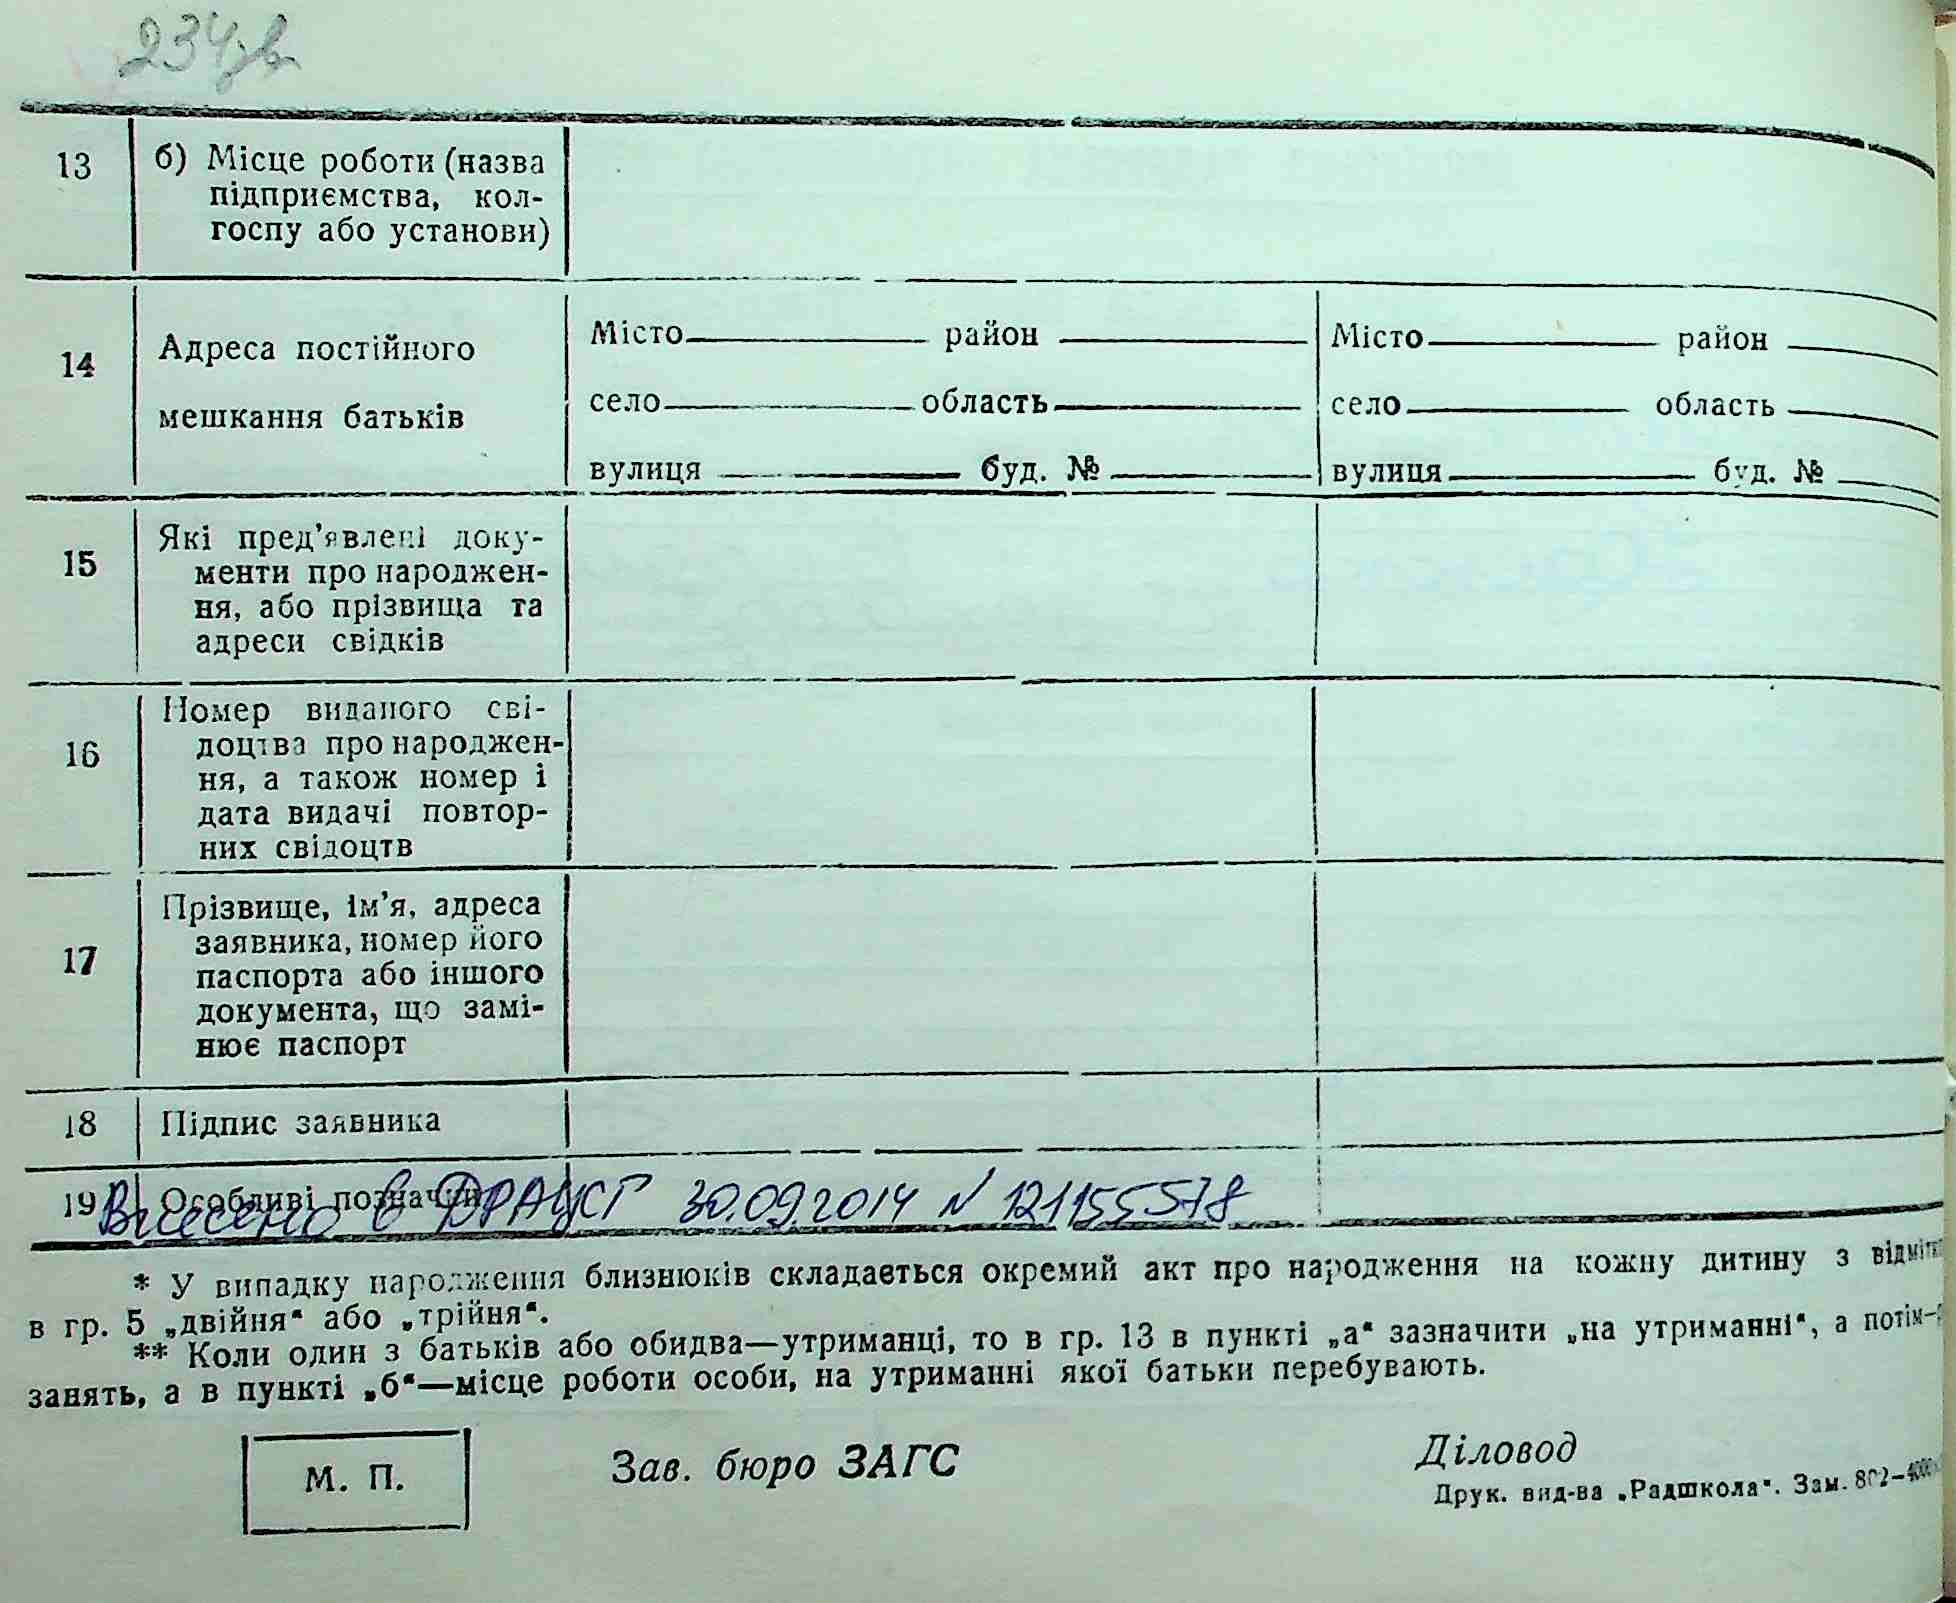 234зв
13 б) Місце роботи (назва
підприємства, кол-
госпу або установи)
14 Адреса постійного
мешкання батьків
Місто район
село область
вулиця буд. №
Місто район
село область
вулиця буд. №
15 Які пред’явлені доку-
менти про народжен-
ня, або прізвища та
адреси свідків
16 Номер виданого сві-
доцтва про народжен-
ня, а також номер і
дата видачі повтор-
них свідоцтв
17 Прізвище, ім’я, адреса
заявника, номер його
паспорта або іншого
документа, що замі-
нює паспорт
18 Підпис заявника
19 Особливі позначки
Внесено в ДРАЦСГ 30.09.2014 N 121155578
* У випадку народження близнюків складається окремий акт про народження на кожну дитину з
в гр. 5 „двійня“ або „трійня“.
** Коли один з батьків або обидва—утриманці, то в гр. 13 в пункті „а“ зазначити „на утриманні“, а потім—
занять, а в пункті „б“—місце роботи особи, на утриманні якої батьки перебувають.
М. П.
Зав. бюро ЗАГС
Діловод
Друк. вид-ва „Радшкола“. Зам. 802—